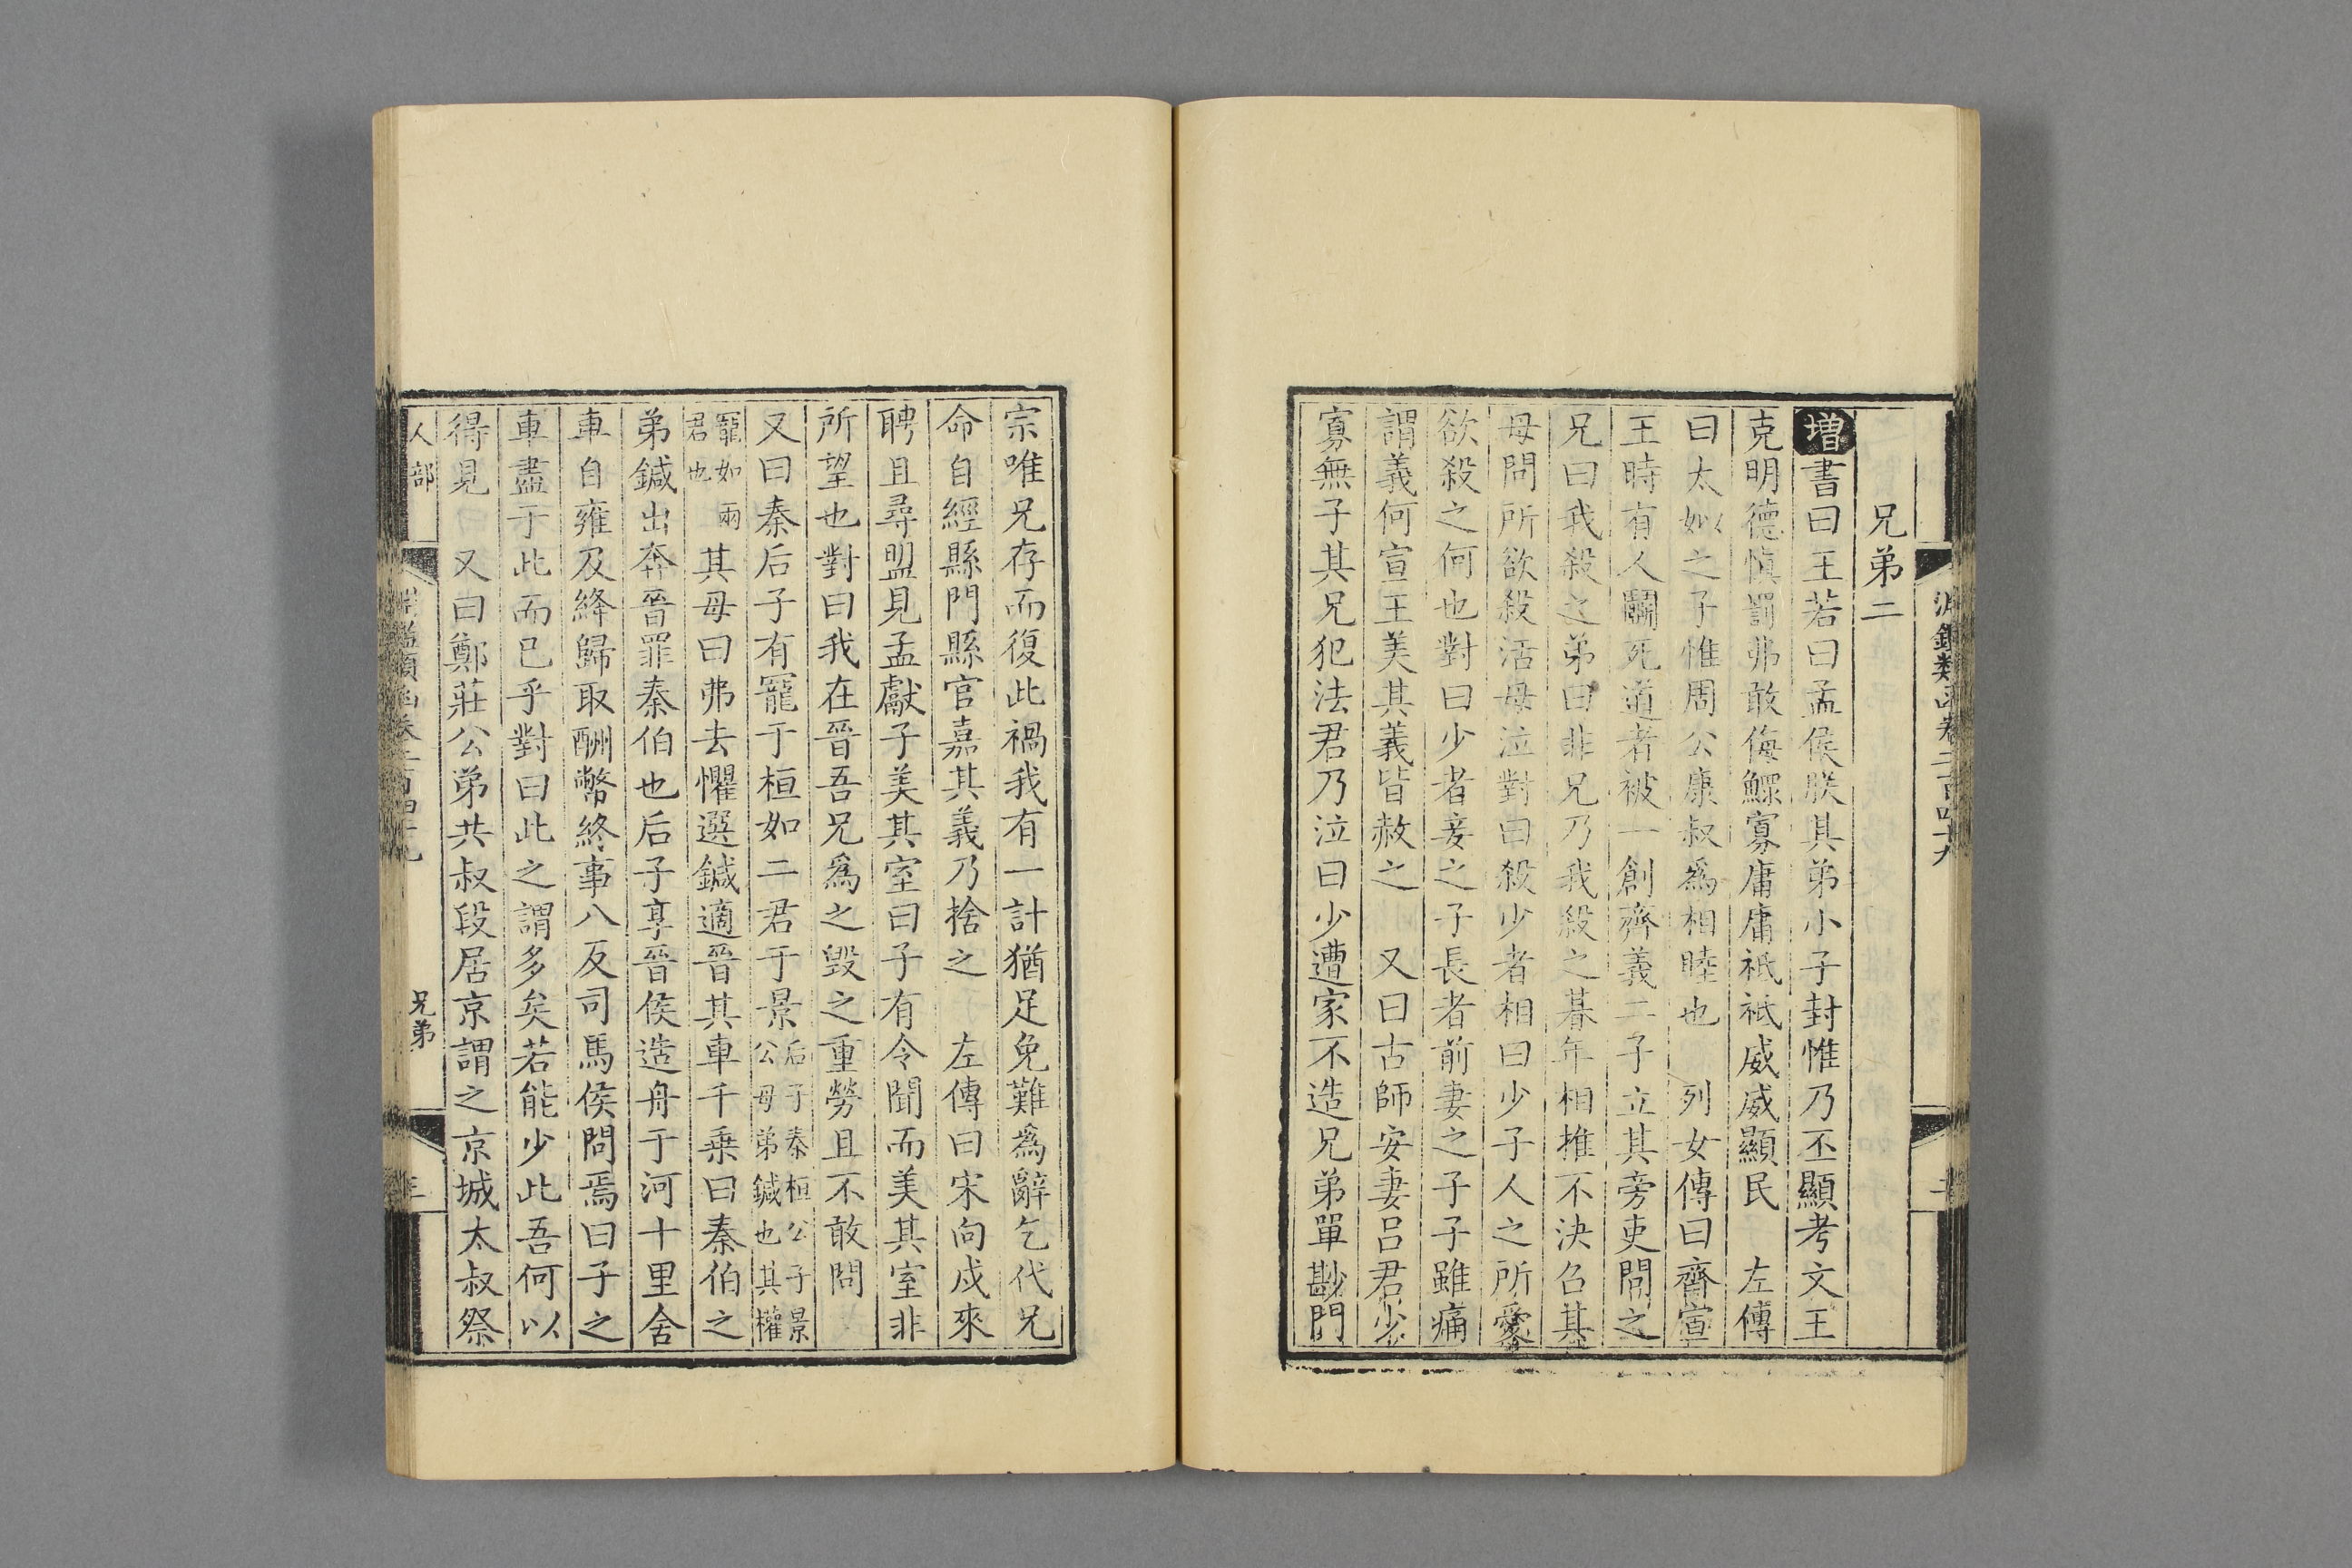 兄弟二
增書曰王若曰孟侯朕其弟小子封惟乃丕顯考文王
克明德慎罰弗敢侮鰥寡庸庸祗祗威威顯民 左傳
曰太姒之子惟周公康叔爲相睦也 列女傳曰齊宣
王時有人鬭死道者被一創齊義二子立其旁吏問之
兄曰我殺之弟曰非兄乃我殺之朞年相推不決召其
母問所欲殺活母泣對曰殺少者相曰少子人之所愛
欲殺之何也對曰少者妾之子長者前妻之子子雖痛
謂義何宣王美其義皆赦之 又曰古師安妻呂君少
寡無子其兄犯法君乃泣曰少遭家不造兄弟單尠門
宗唯兄存而復此禍我有一計猶足免難爲辭乞代兄
命自經縣門縣官嘉其義乃捨之 左傳曰宋向戍來
聘且尋盟見孟獻子美其室曰子有令聞而美其室非
所望也對曰我在晉吾兄爲之毀之重勞且不敢問
又曰秦后子有寵于桓如二君于景后子秦桓公子景公母弟鍼也其權
寵如兩君也其母曰弗去懼選鍼適晉其車千乗曰秦伯之
弟鍼出奔晉罪秦伯也后子享晉侯造舟于河十里舍
車自雍及絳歸取酬幣終事八反司馬侯問焉曰子之
車盡于此而已乎對曰此之謂多矣若能少此吾何以
得見 又曰鄭莊公弟共叔段居京謂之京城太叔祭
人部
兄弟
三